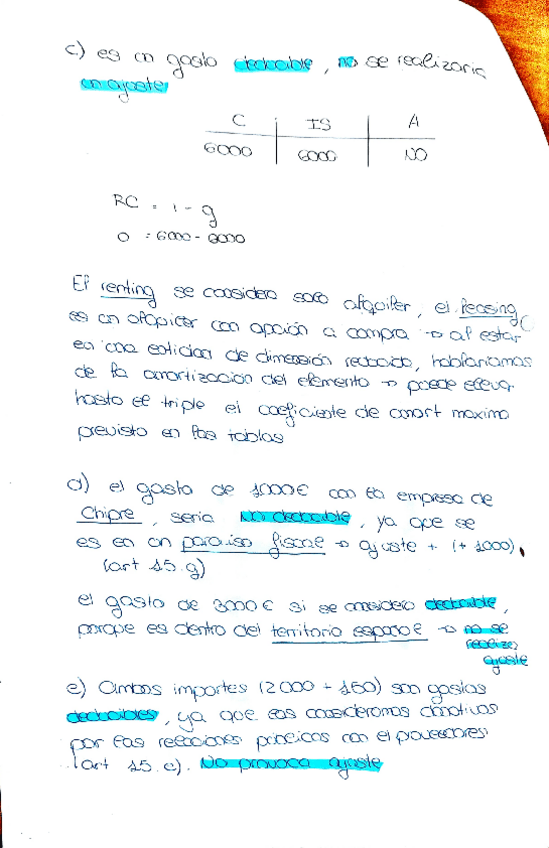 c) es un gasto deducible, no se realizaria
un ajuste
C IS A
6000 6000 NO
RC = i - g
0 = 6000 - 6000
El renting se considera solo alquiler, el leasing
es un alquiler con opción a compra → al estar
en una entidad de dimensión reducida, hablaríamos
de la amortización del elemento → puede elevar
hasta el triple el coeficiente de amort maximo
previsto en las tablas
d) el gasto de 1000€ con la empresa de
Chipre, seria No deducible, ya que se
es en un paraiso fiscal → ajuste + (+ 1000)
(art 15.g)
el gasto de 3000€ si se considera deducible,
porque es dentro del territorio español → no se
realize
ajuste
e) Ambos importes (2000 + 160) son gastos
deducibles, ya que los consideramos donativos
por las relaciones públicas con el proveedores
(art 15.e). No provoca ajuste